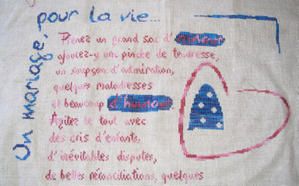 Un mariage,
pour la vie...
Prenez un grand sac d'
ajoutez-y un pincée de tendresse,
un soupçon d'admiration,
quelques maladresses
et beaucoup d'humour
Agitez le tout avec
des cris d'enfants,
d'inévitables disputes,
de belles réconciliations, quelques